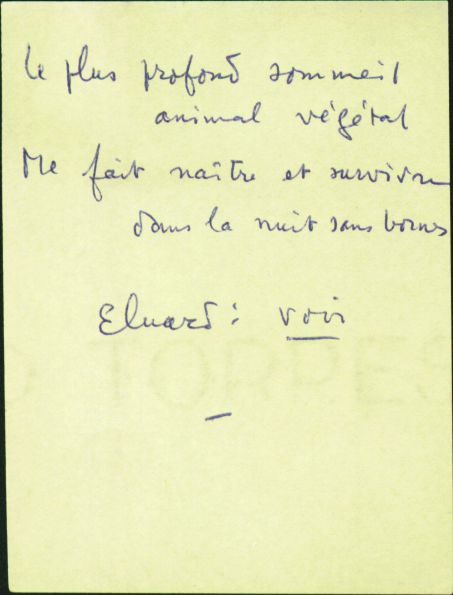 Le plus profond sommeil
animal végétal
Me fait naître et survivre
dans la nuit sans bornes
Eluard : Voir
TORRES